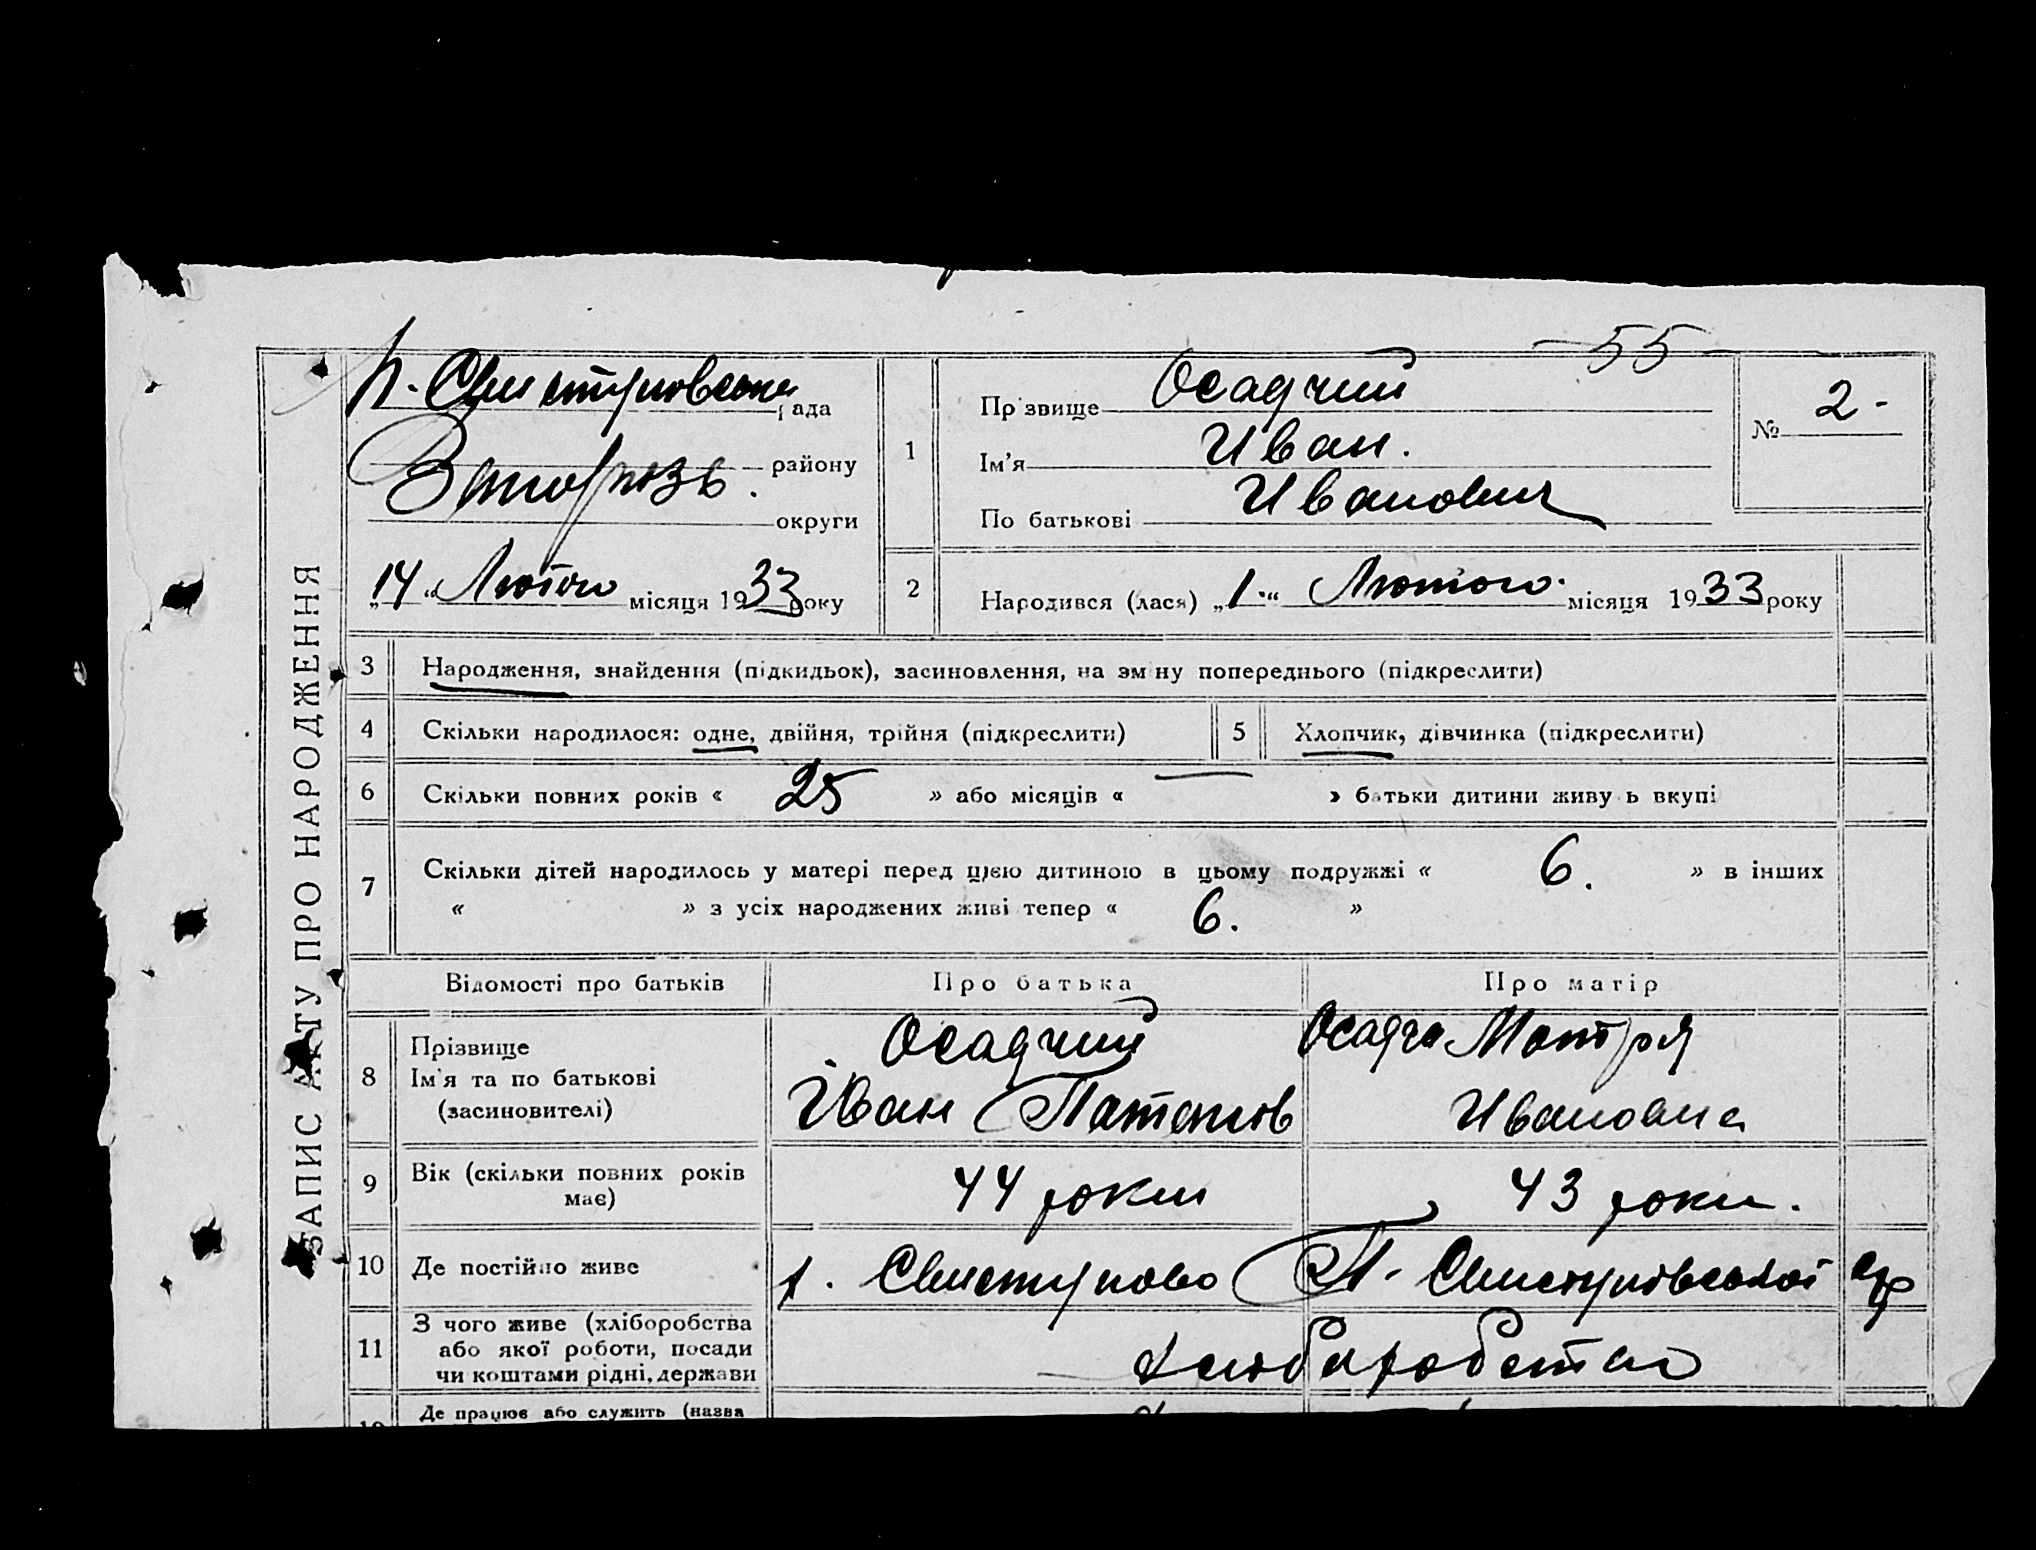 ЗАПИС АКТУ ПРО НАРОДЖЕННЯ
55
П. Свистуновська рада
Запорізь. району
округи
„14“ Лютого місяця 1933 року
1
Прізвище Осадчий
Ім'я Иван.
По батькові Иванович
№ 2-
2
Народився (лася) „1.“ Лютого. місяця 1933 року
3 Народження, знайдення (підкидьок), засиновлення, на зміну попереднього (підкреслити)
4 Скільки народилося: одне, двійня, трійня (підкреслити) 5 Хлопчик, дівчинка (підкреслити)
6 Скільки повних років « 25 » або місяців « — » батьки дитини живуть вкупі
7 Скільки дітей народилось у матері перед цією дитиною в цьому подружжі « 6. » в інших
« » з усіх народжених живі тепер « 6. »
Відомості про батьків Про батька Про матір
8
Прізвище
Ім'я та по батькові
(засиновителі)
Осадчий
Іван
Осадча Мотря
Ивановна
9
Вік (скільки повних років
має)
44 роки
43 роки.
10 Де постійно живе
х. Свистуново П. Свистунівської с/р
11
З чого живе (хліборобства
або якої роботи, посади
чи коштами рідні, держави
Де працює або служить (назва